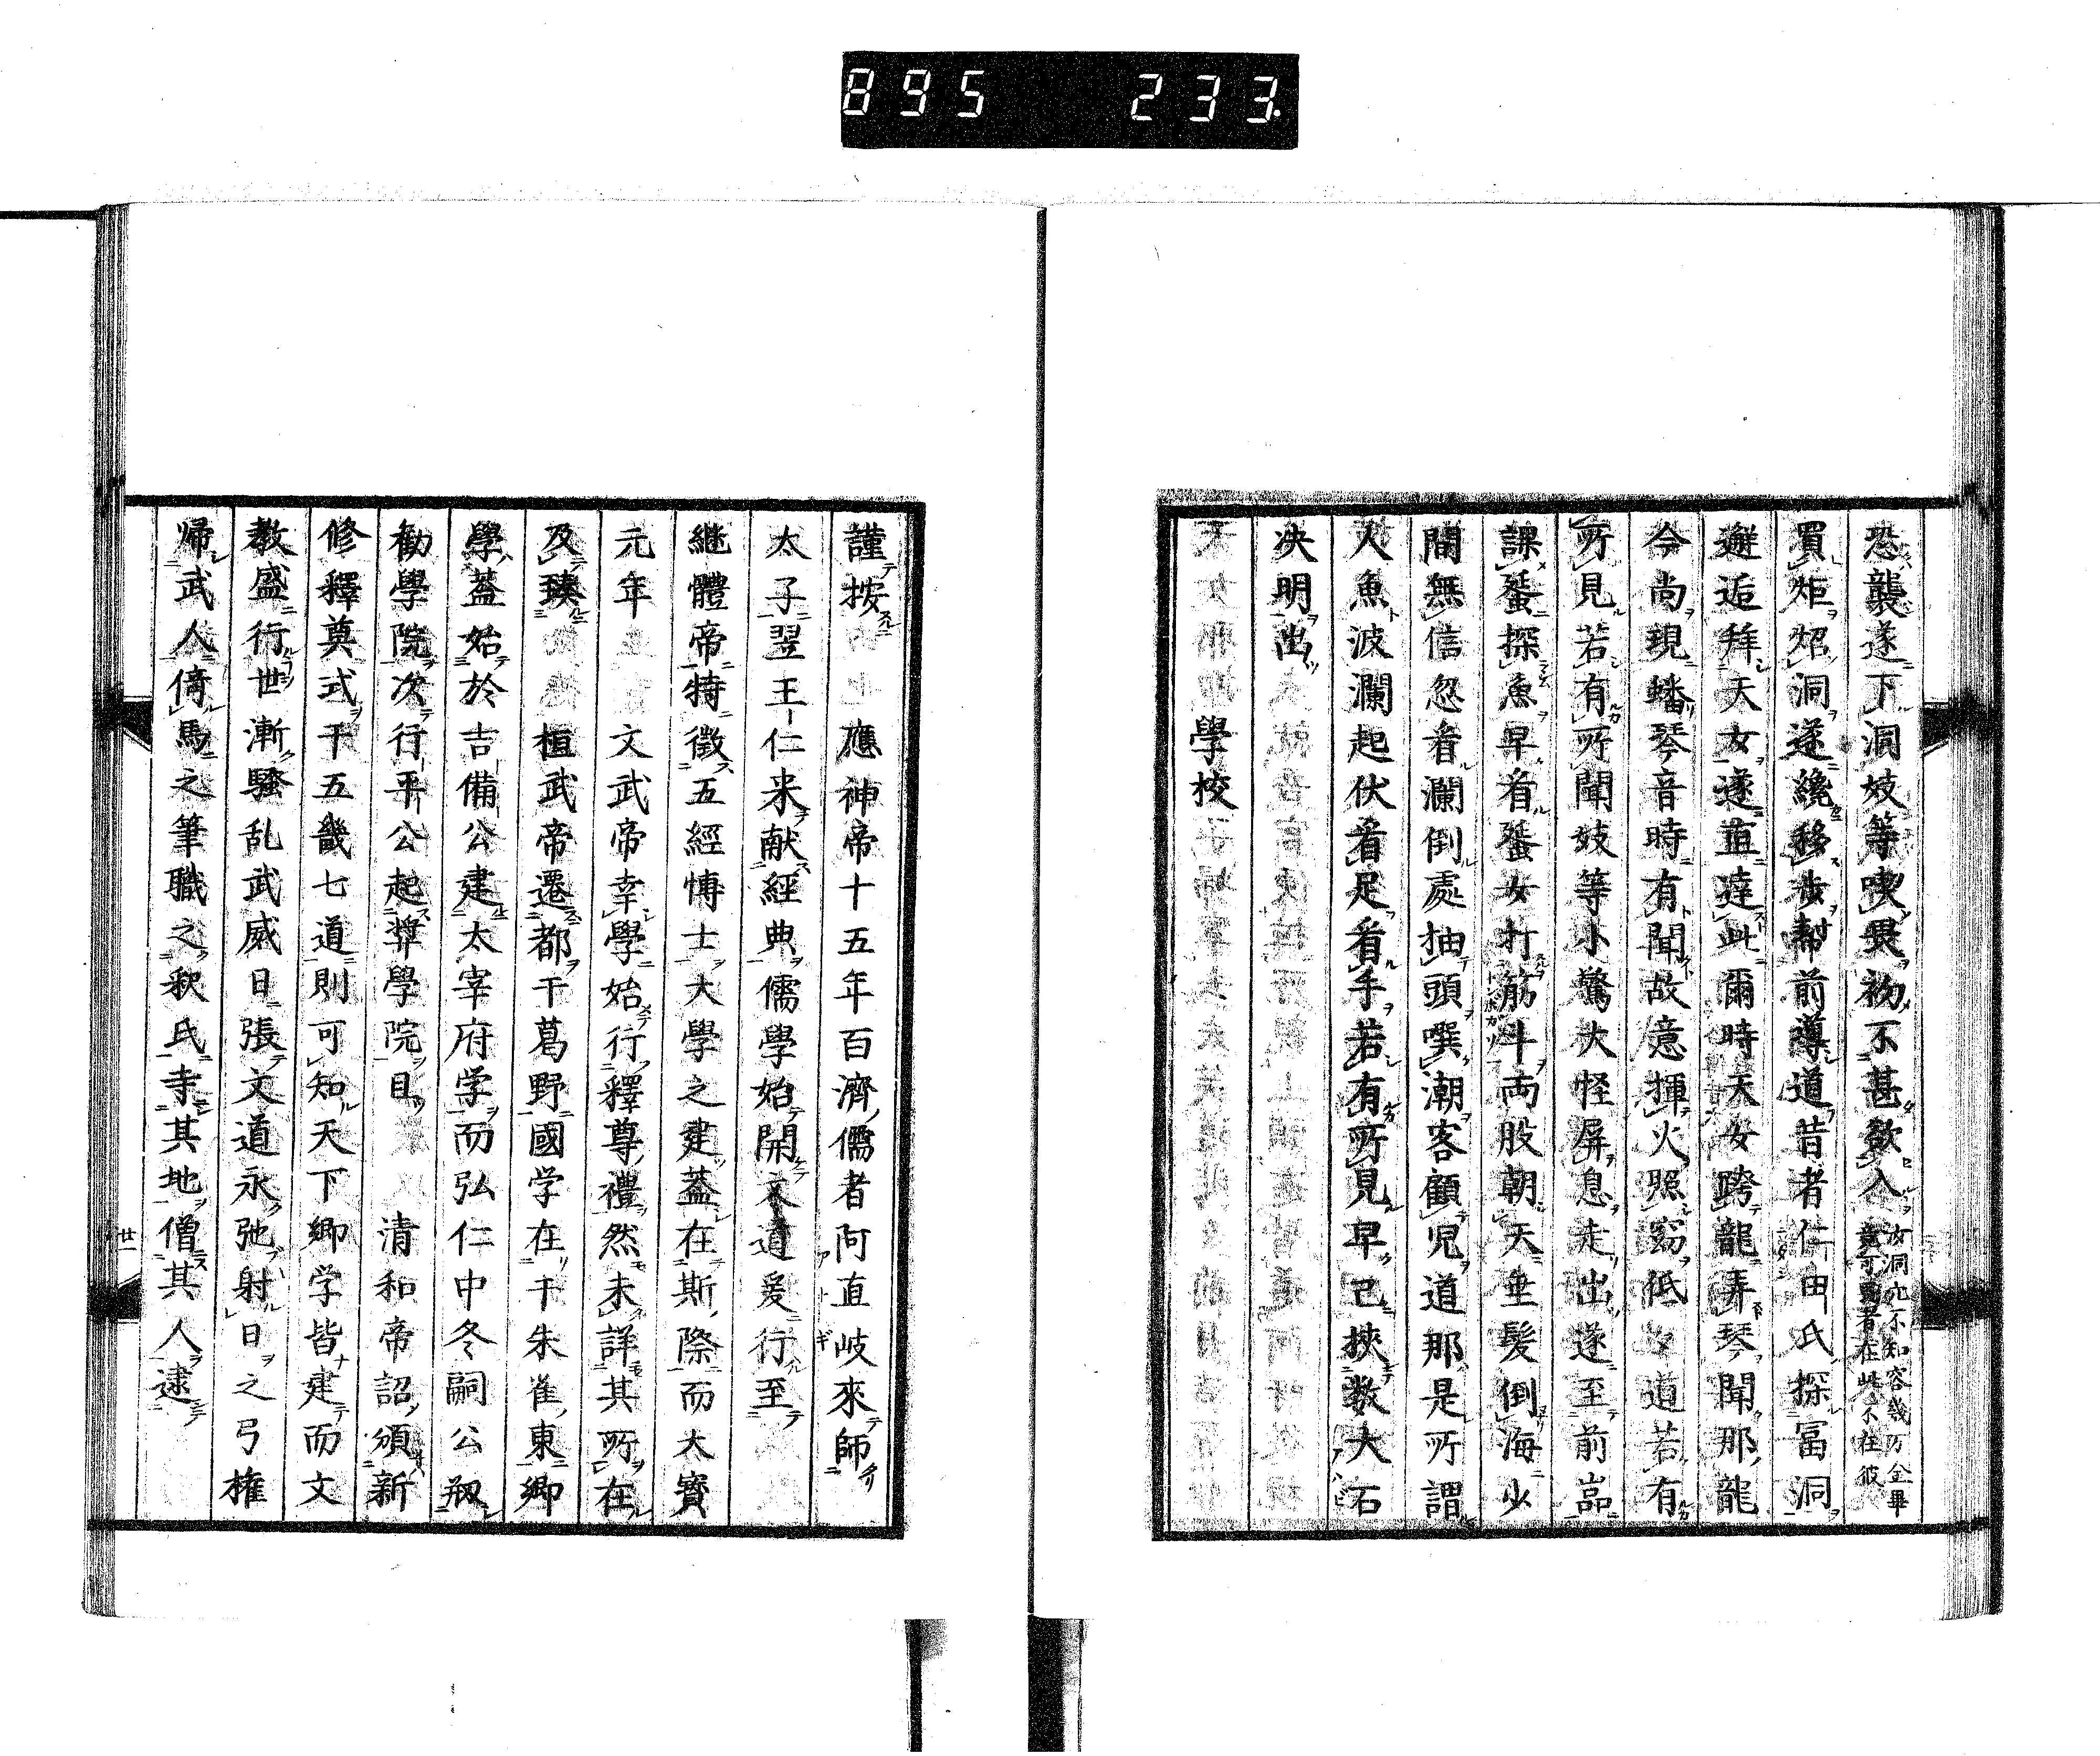 895 233
恐襲遂下洞妓等喫畏初不甚欲入
女洞宂不知容幾万金畢
竟可買者在此不在彼
買炬炤洞遂纔移步幇前導道昔者仁田氏探冨洞
邂逅拜天女遂直達此爾時天女跨龍弄琴聞那龍
今尚現蟠琴音時有聞故意揮火照窈低道若有
所見若有所聞妓等小驚大怪屏息走出遂至前嵓
課蜑探魚早看蜑女打筋斗両股朝天垂髪倒海少
間無信忽看瀾倒處抽頭噀潮客顧児道那是所謂
人魚波瀾起伏看足看手若有所見早已挾数大石
决明出
學校
謹按應神帝十五年百濟儒者阿直岐來師
太子翌王仁来献經典儒學始開文道爰行至
継體帝特徵五經博士大學之建蓋在斯際而大寳
元年文武帝幸學始行釋尊禮然未詳其所在
及臻桓武帝遷都于葛野國学在于朱雀東郷
學蓋始於吉備公建太宰府学而弘仁中冬嗣公剏
勧學院次行平公起奨學院目清和帝詔頒新
修釋奠式于五畿七道則可知天下郷学皆建而文
教盛行世漸騷乱武威日張文道永弛射日之弓権
帰武人倚馬之筆職之釈氏寺其地僧其人逮
廿一